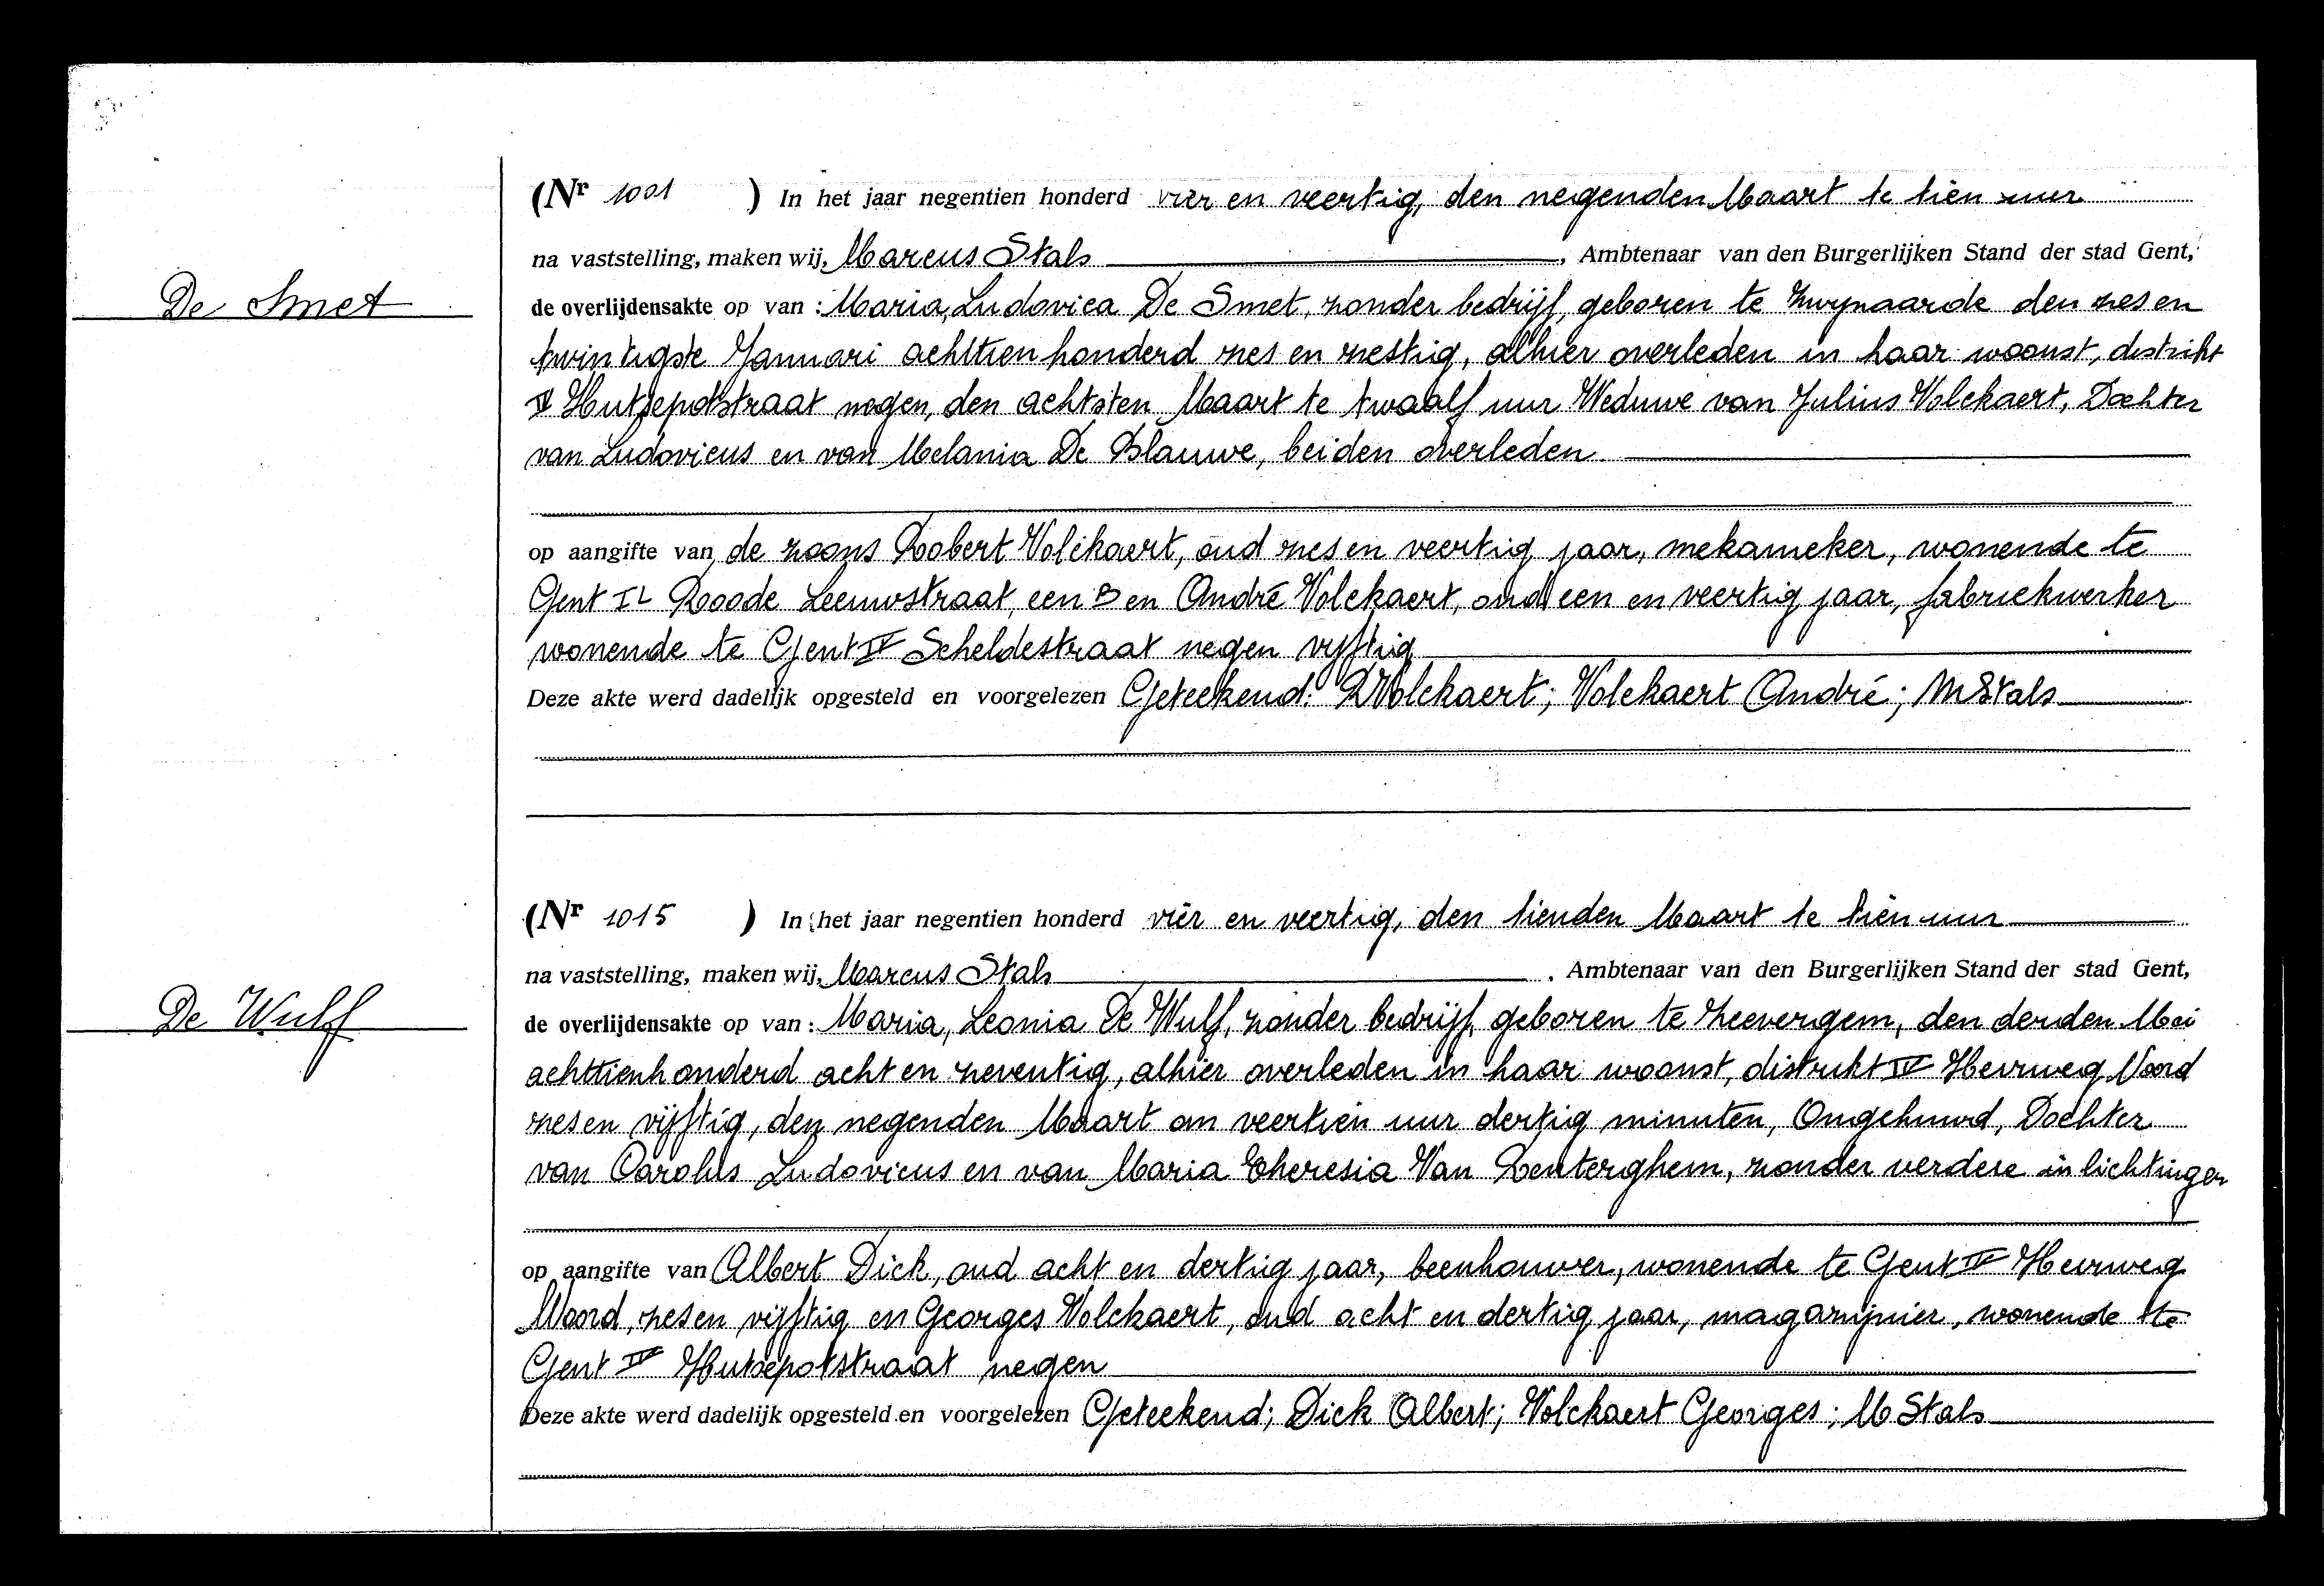 (Nr 1001 ) In het jaar negentien honderd vier en veertig, den negenden Maart te tien uur
na vaststelling, maken wij, Marcus Stals , Ambtenaar van den Burgerlijken Stand der stad Gent,
De Smet
de overlijdensakte op van : Maria, Ludovica De Smet, zonder bedrijf, geboren te Zwynaarde den zes en
twintigste Januari achttien honderd zes en zestig, alhier overleden in haar woonst, distrikt
IV Hutsepotstraat negen, den achtsten Maart te twaalf uur Weduwe van Julius Volckaert, Dochter
van Ludovicus en van Melania De Blauwe, beiden overleden
op aangifte van de zoons Robert Volckaert, oud zes en veertig jaar, mekanieker, wonende te
Gent Roode Leeuwstraat, een B en André Volckaert, oud een en veertig jaar, fabriekwerker
wonende te Gent IV Scheldestraat negen vijftig
Deze akte werd dadelijk opgesteld en voorgelezen Geteekend: R Volckaert; Volckaert André; M Stals
(Nr 1015 ) In het jaar negentien honderd vier en veertig, den tienden Maart te tien uur
na vaststelling, maken wij, Marcus Stals , Ambtenaar van den Burgerlijken Stand der stad Gent,
De Wulf
de overlijdensakte op van : Maria, Leonia De Wulf, zonder bedrijf, geboren te Zeevergem, den derden Mei
achttienhonderd acht en zeventig, alhier overleden in haar woonst, distrikt IV Heirweg Noord
zes en vijftig, den negenden Maart om veertien uur dertig minuten, Ongehuwd, Dochter
van Carolus Ludovicus en van Maria Theresia Van Renterghem, zonder verdere inlichtingen
op aangifte van Albert Dick, oud acht en dertig jaar, beenhouwer, wonende te Gent IV Heirweg
Noord, zes en vijftig en Georges Volckaert, oud acht en dertig jaar, magazijnier, wonende te
Gent IV Hutsepotstraat negen
Deze akte werd dadelijk opgesteld en voorgelezen Geteekend; Dick Albert; Volckaert Georges; M Stals